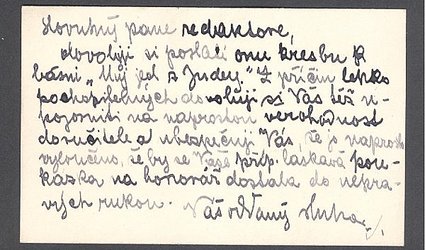 Slovutný pane redaktore,
dovoluji si poslati onu kresbu k
básni „Můj jed z Judey." Z příčin lehko
pochopitelných dovoluji si Vás též u-
pozorniti na naprostou verohodnost
doručitele a ubezpečuji Vás, že je naprosto
vyloučeno, že by se Vaše příp. laskavá pou-
kázka na honorář dostala do nepra-
vých rukou. Váš oddaný sluha